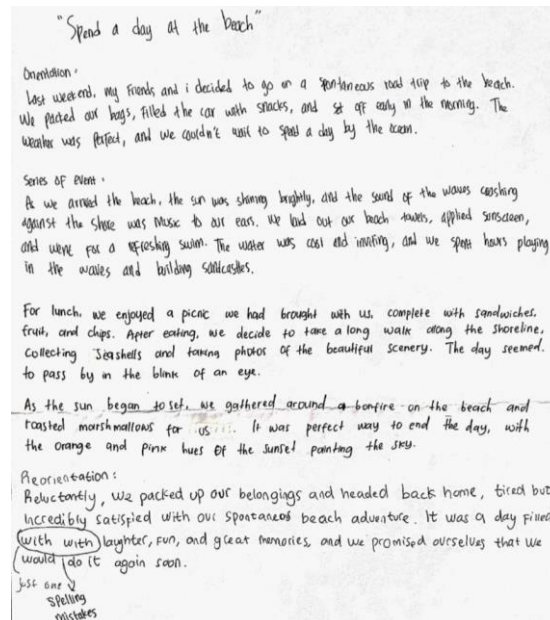 "Spend a day at the beach"
Orientation :
Last weekend, my friends and i decided to go on a spontaneous road trip to the beach.
We packed our bags, filled the car with snacks, and set off early in the morning. The
weather was perfect, and we couldn't wait to spend a day by the ocean.
Series of event :
As we arrived the beach, the sun was shining brightly, and the sound of the waves crashing
against the shore was music to our ears. We laid out our beach towels, applied sunscreen,
and went for a refreshing swim. The water was cool and inviting, and we spent hours playing
in the waves and building sandcastles.
For lunch, we enjoyed a picnic we had brought with us, complete with sandwiches,
fruit, and chips. After eating, we decide to take a long walk along the shoreline,
collecting seashells and taking photos of the beautiful scenery. The day seemed.
to pass by in the blink of an eye.
As the sun began to set, we gathered around a bonfire on the beach and
roasted marshmallows for us. It was perfect way to end the day, with
the orange and pink hues of the sunset painting the sky.
Reorientation :
Reluctantly, we packed up our belongings and headed back home, tired but
incredibly satisfied with our spontaneos beach adventure. It was a day filled
with with laughter, fun, and great memories, and we promised ourselves that we
would do it again soon.
just one
spelling
mistakes